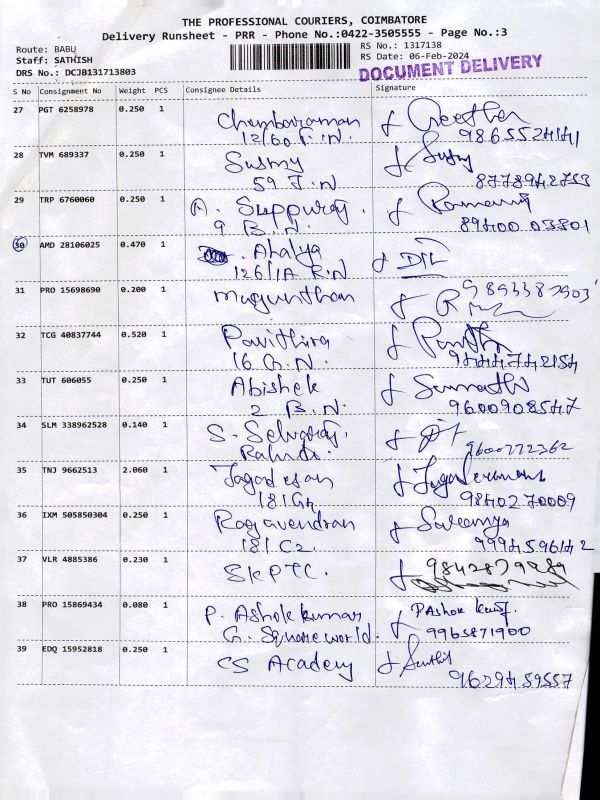 THE PROFESSIONAL COURIERS, COIMBATORE
Delivery Runsheet - PRR - Phone No.:0422-3505555 - Page No.:3
Route: BABU
Staff: SATHISH
DRS No.: DCJB131713803
RS No.: 1317138
RS Date: 06-Feb-2024
DOCUMENT DELIVERY
S No Consignment No Weight PCS Consignee Details Signature
27 PGT 6258978 0.250 1 Chembaraman
12/60 F.N. 9865524141
28 TVM 689337 0.250 1 Susmy Susmy
59 J.N 8778942753
29 TRP 6760060 0.250 1 A. Suppuraj.
9 B.N. 89400 03801
30 AMD 28106025 0.470 1 Ahalya
126/1A R.N
31 PRO 15698690 0.200 1 Mugunthan 9893387903
32 TCG 40837744 0.520 1 Pavithira
16 G.N. 9444742154
33 TUT 606055 0.250 1 Abishek Sumathi
2 B.N. 9600908547
34 SLM 338962528 0.140 1 S. Selvaraj.
9600772362
35 TNJ 9662513 2.060 1 Jagadesan
181 G4 9840270009
36 IXM 505850304 0.250 1 Ragavendran Sowmya
181 C2. 9994596142
37 VLR 4885386 0.230 1 SKPTC. 9842879289
38 PRO 15869434 0.080 1 P. Ashok kumar PAshok
G. Square world. 9965871900
39 EDQ 15952818 0.250 1 CS Academy Senthil
9629459557